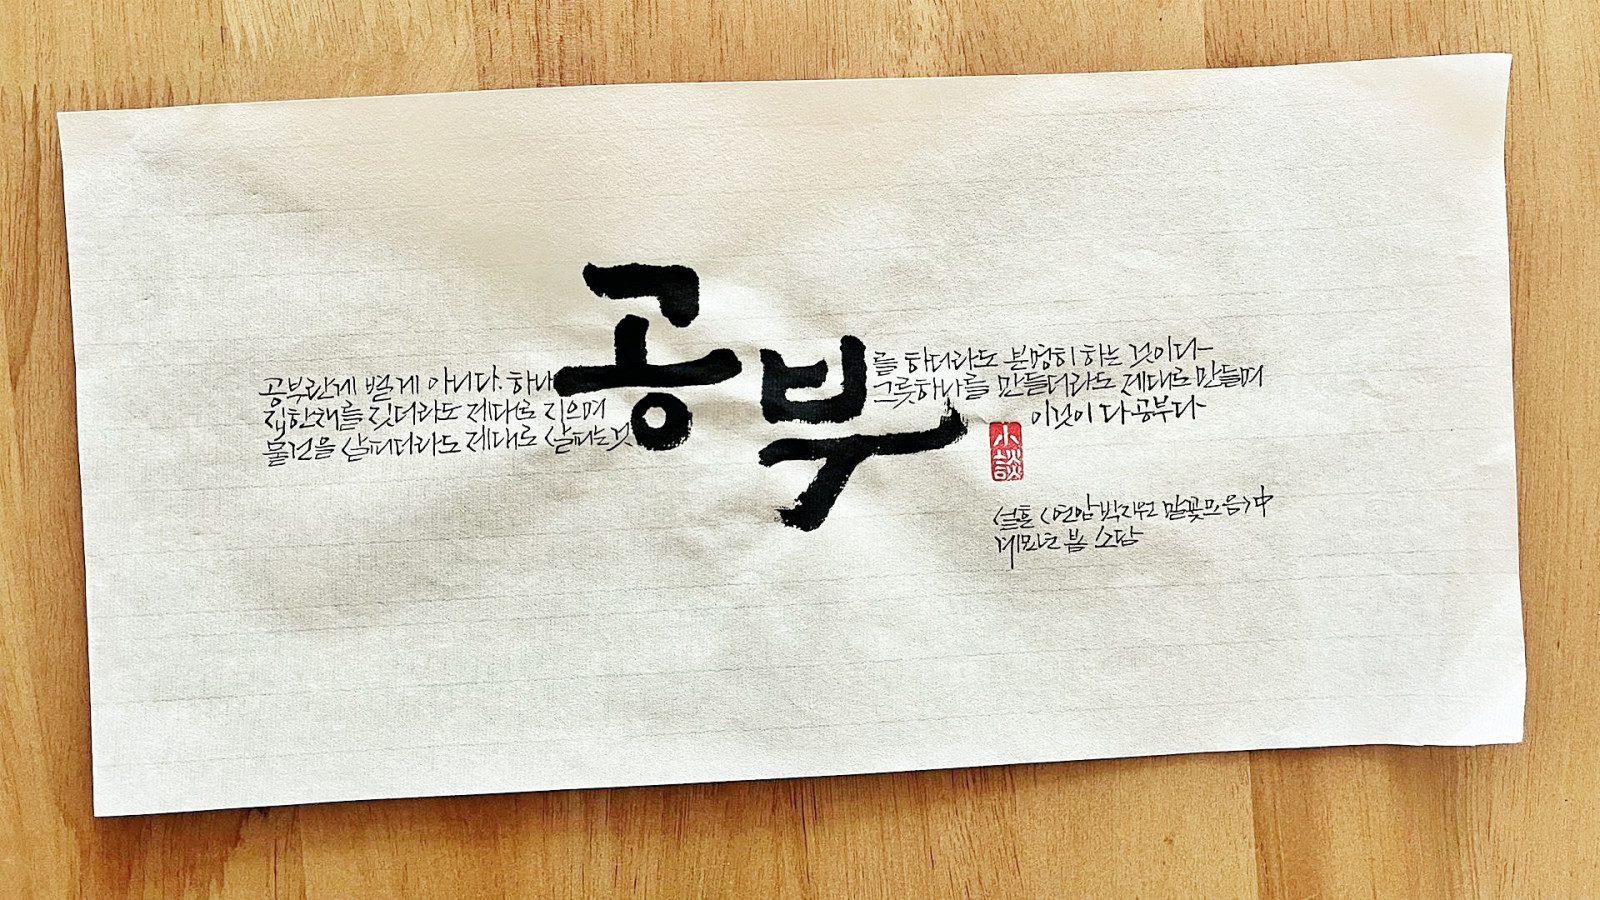 공부
공부란게 별게 아니다. 하나
를 하더라도 분명히 하는 것이다
집한채를 짓더라도 제대로 지으며
그릇하나를 만들더라도 제대로 만들며
물건을 살피더라도 제대로 살피는것
이것이 다 공부다
小談
설흔 <연암 박지원 말꽃모음> 中
계묘년 봄 소담